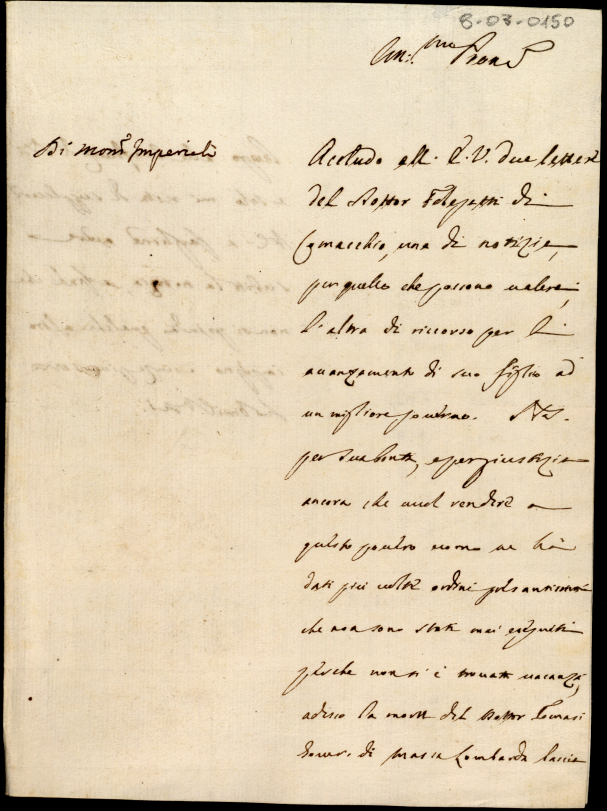 8-03-0150
Di Mons.r Imperiali
Accludo all. E.V. due lettere
del Dottor Folegatti di
Comacchio, una di notizie,
per quello che possono valere;
l'altra di ricorso per l'
avanzamento di suo figlio ad
un migliore governo. N.S.
per sua bontà, e per giustizia
ancora che vuol rendere a
questo povero uomo ne hà
dati più volte ordini pressantissimi
che non sono stati mai eseguiti
perche non si è trovata vacanza,
adesso la morte del Dottor Tomasi
Gover. di Massa Lombarda lascia